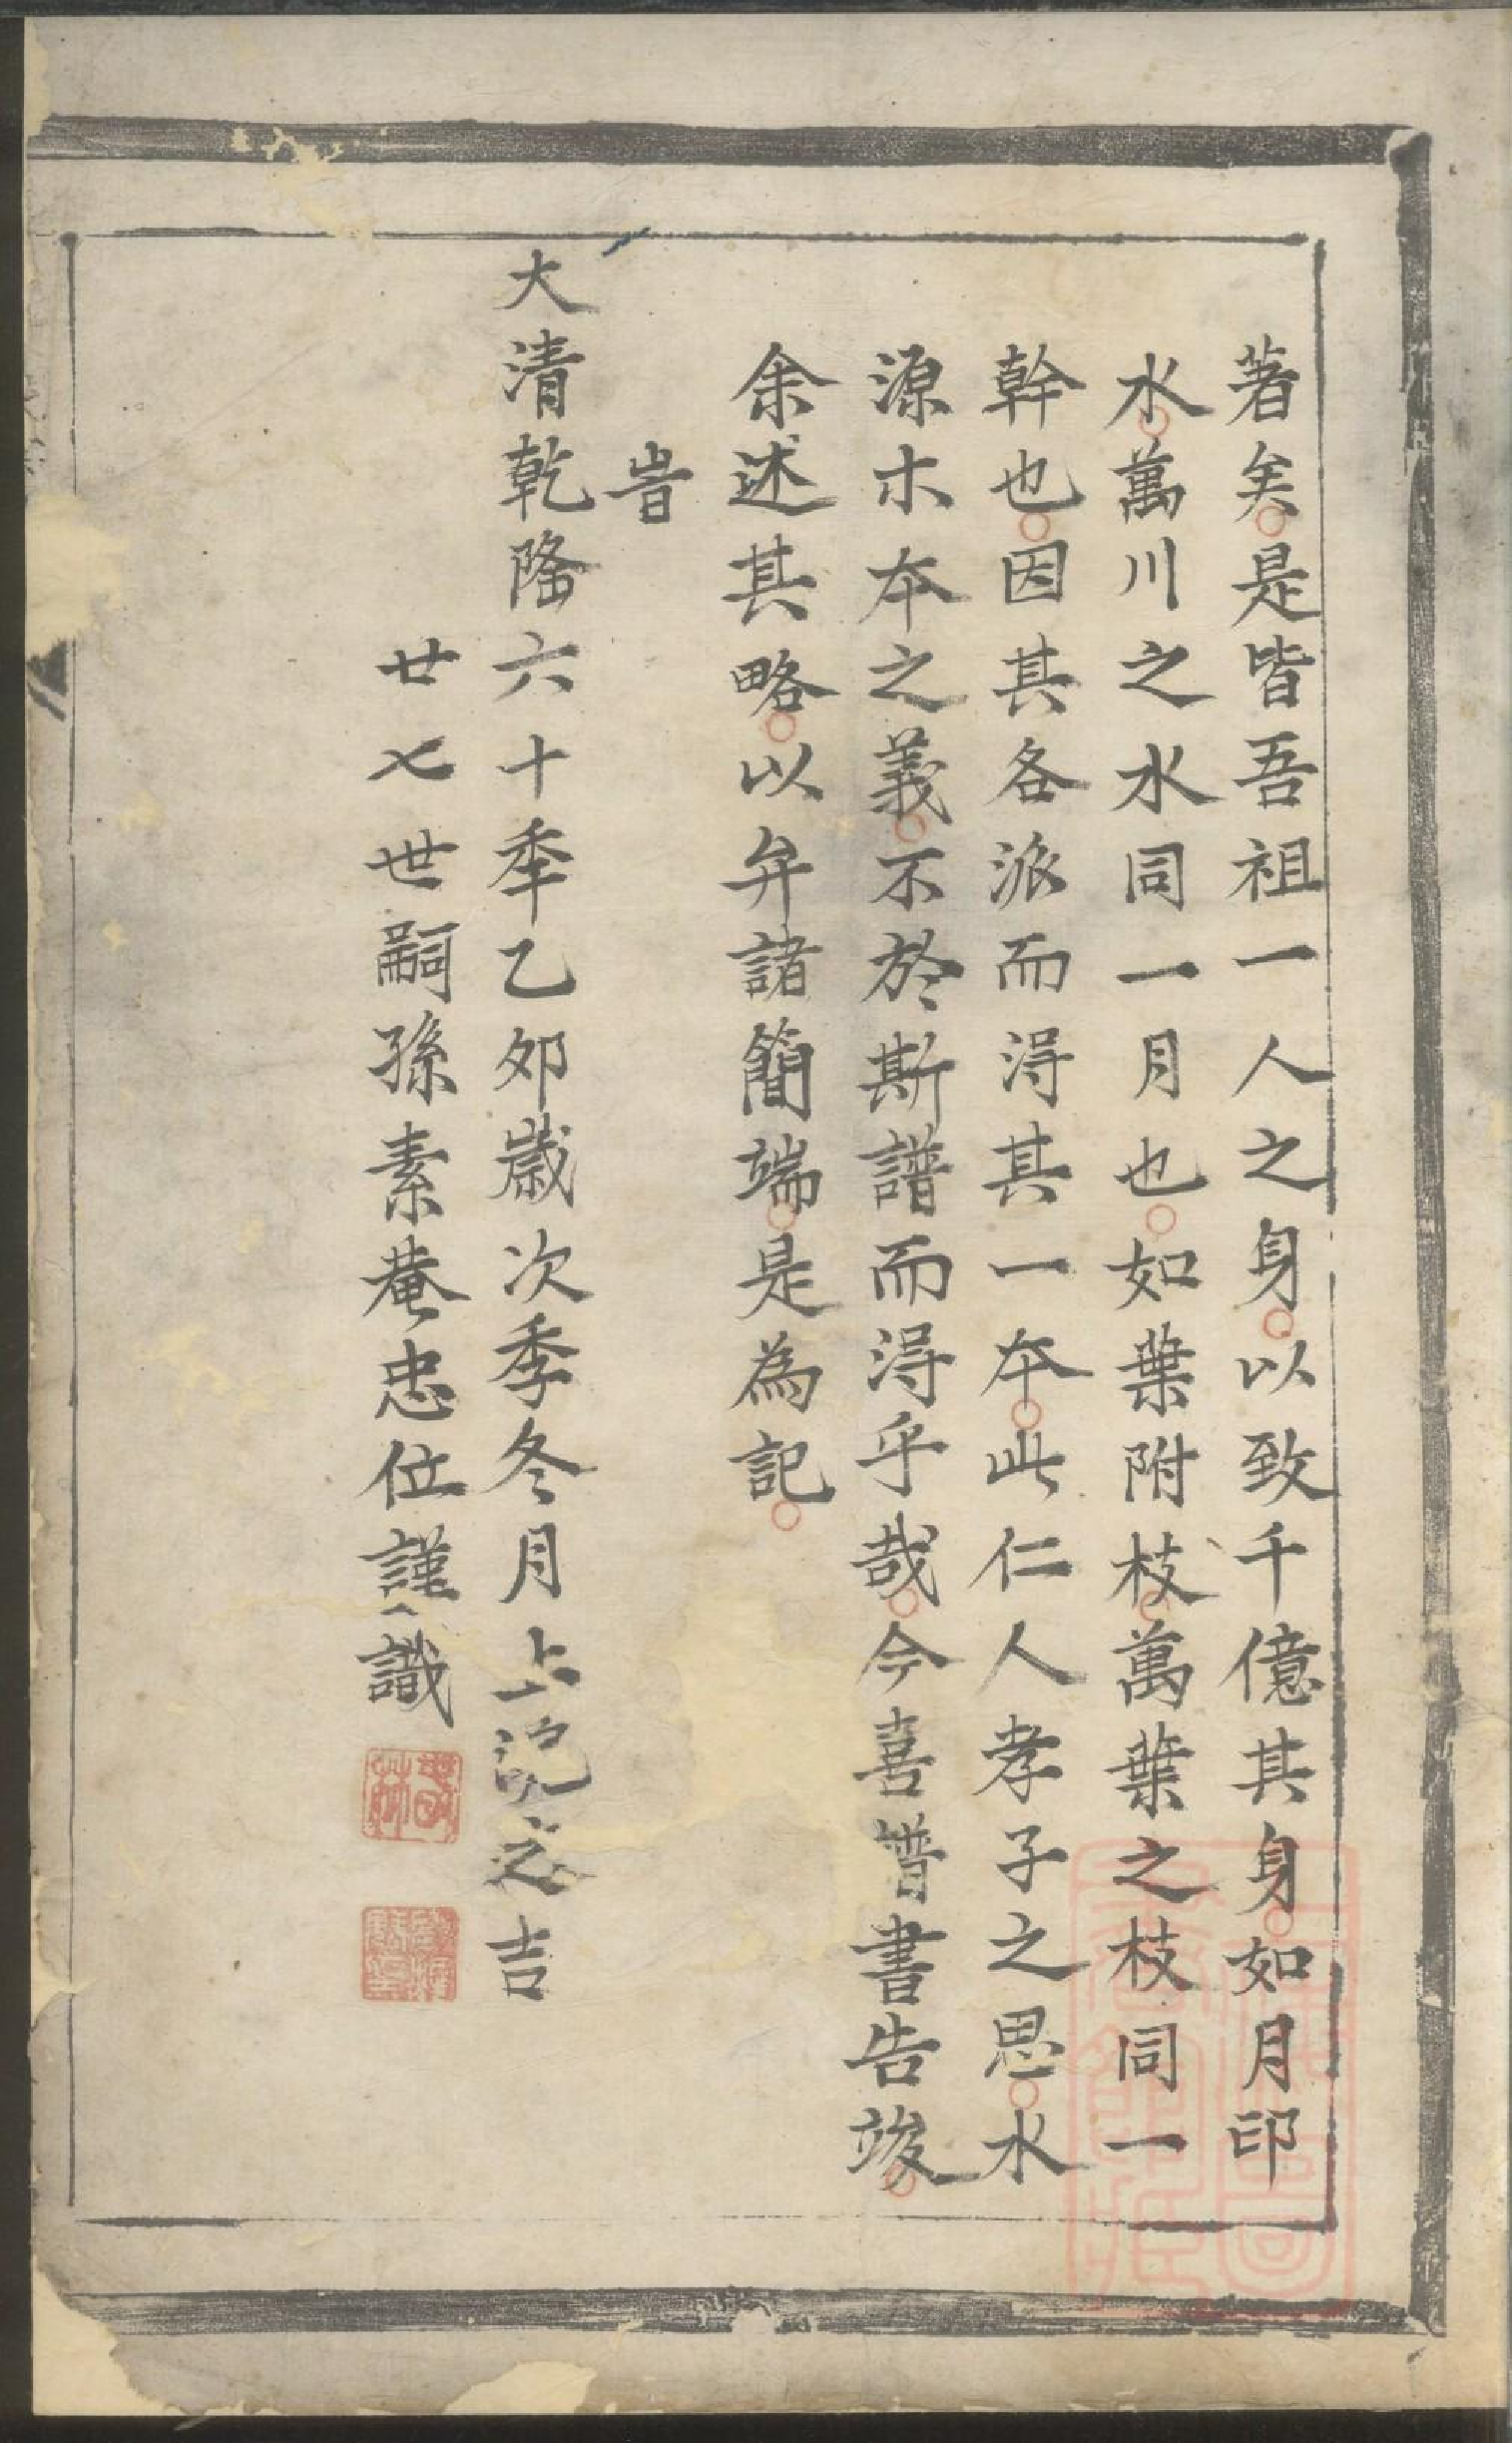 著矣是皆吾祖一人之身以致千億其身如月印
水萬川之水同一月也如葉附枝萬葉之枝同一
幹也因其各派而淂其一夲此仁人孝子之思水
源木夲之義不於斯譜而淂乎哉今喜譜書告竣
余述其略以弁諸簡端是為記
旹
大清乾隆六十秊乙夘歲次季冬月上浣之吉
廿七世嗣孫素菴忠位謹識